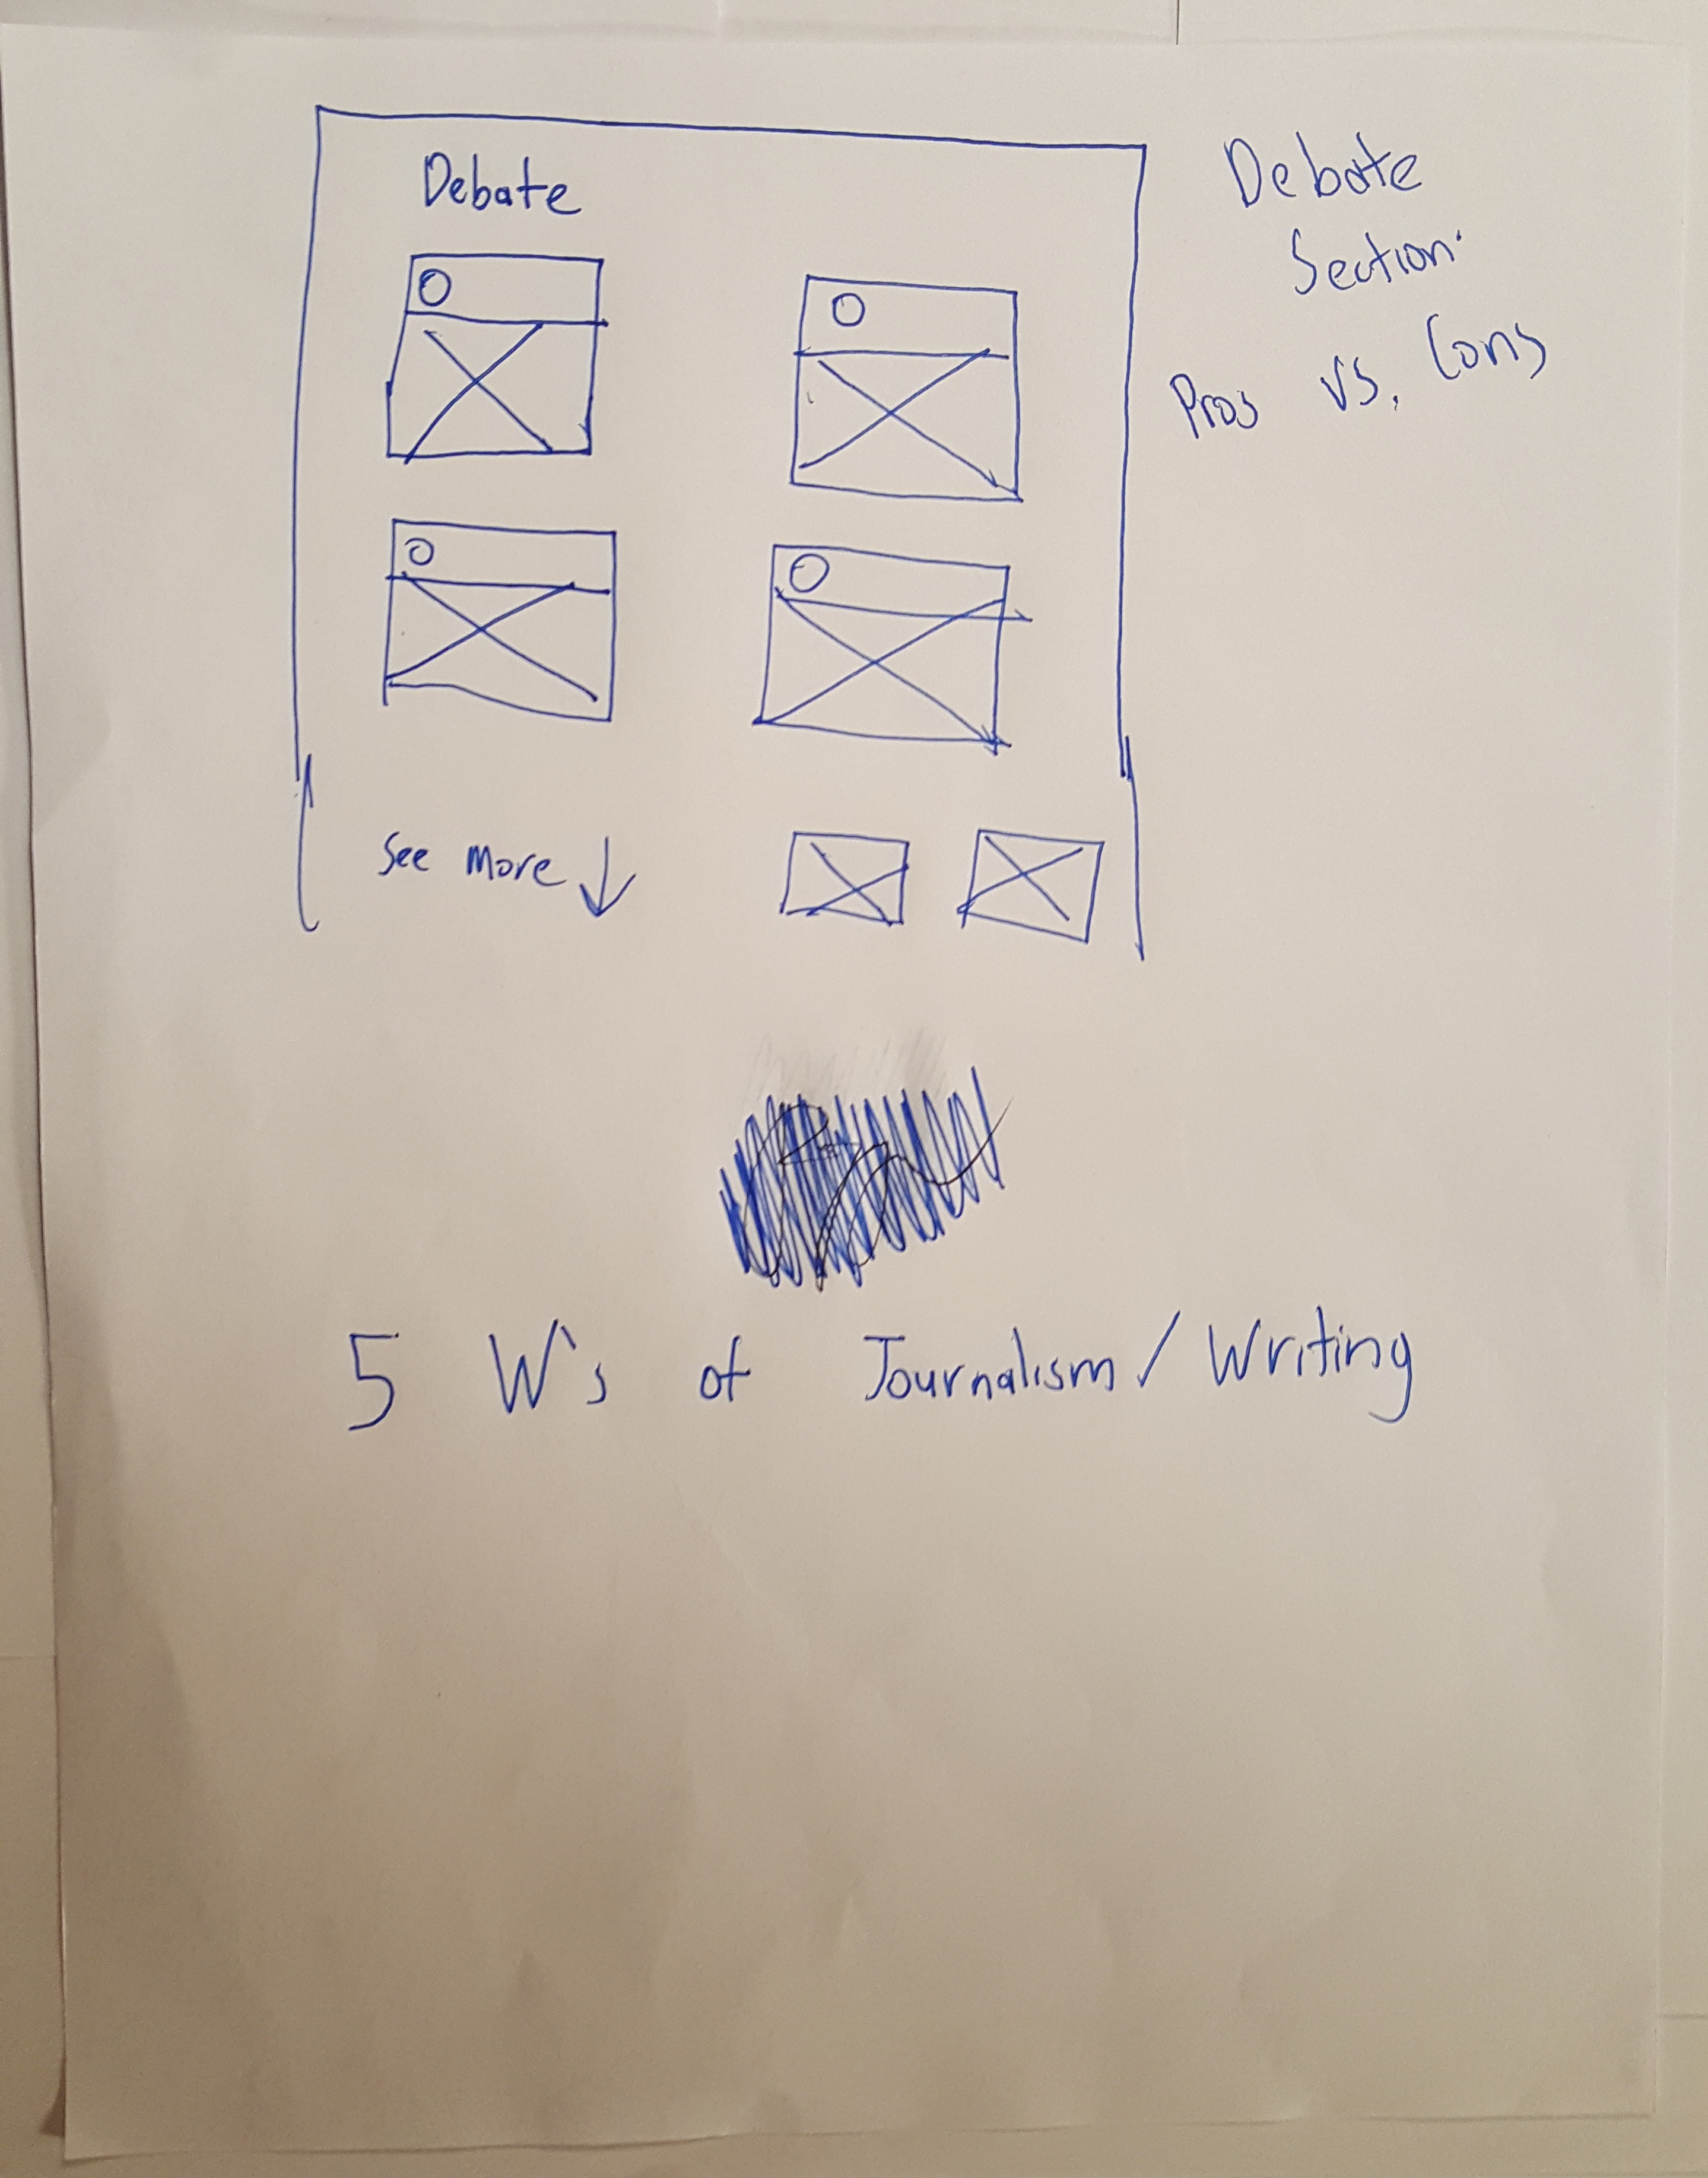 Debate
See More
Debate
Section:
Pros vs. Cons
5 W's of Journalism/Writing